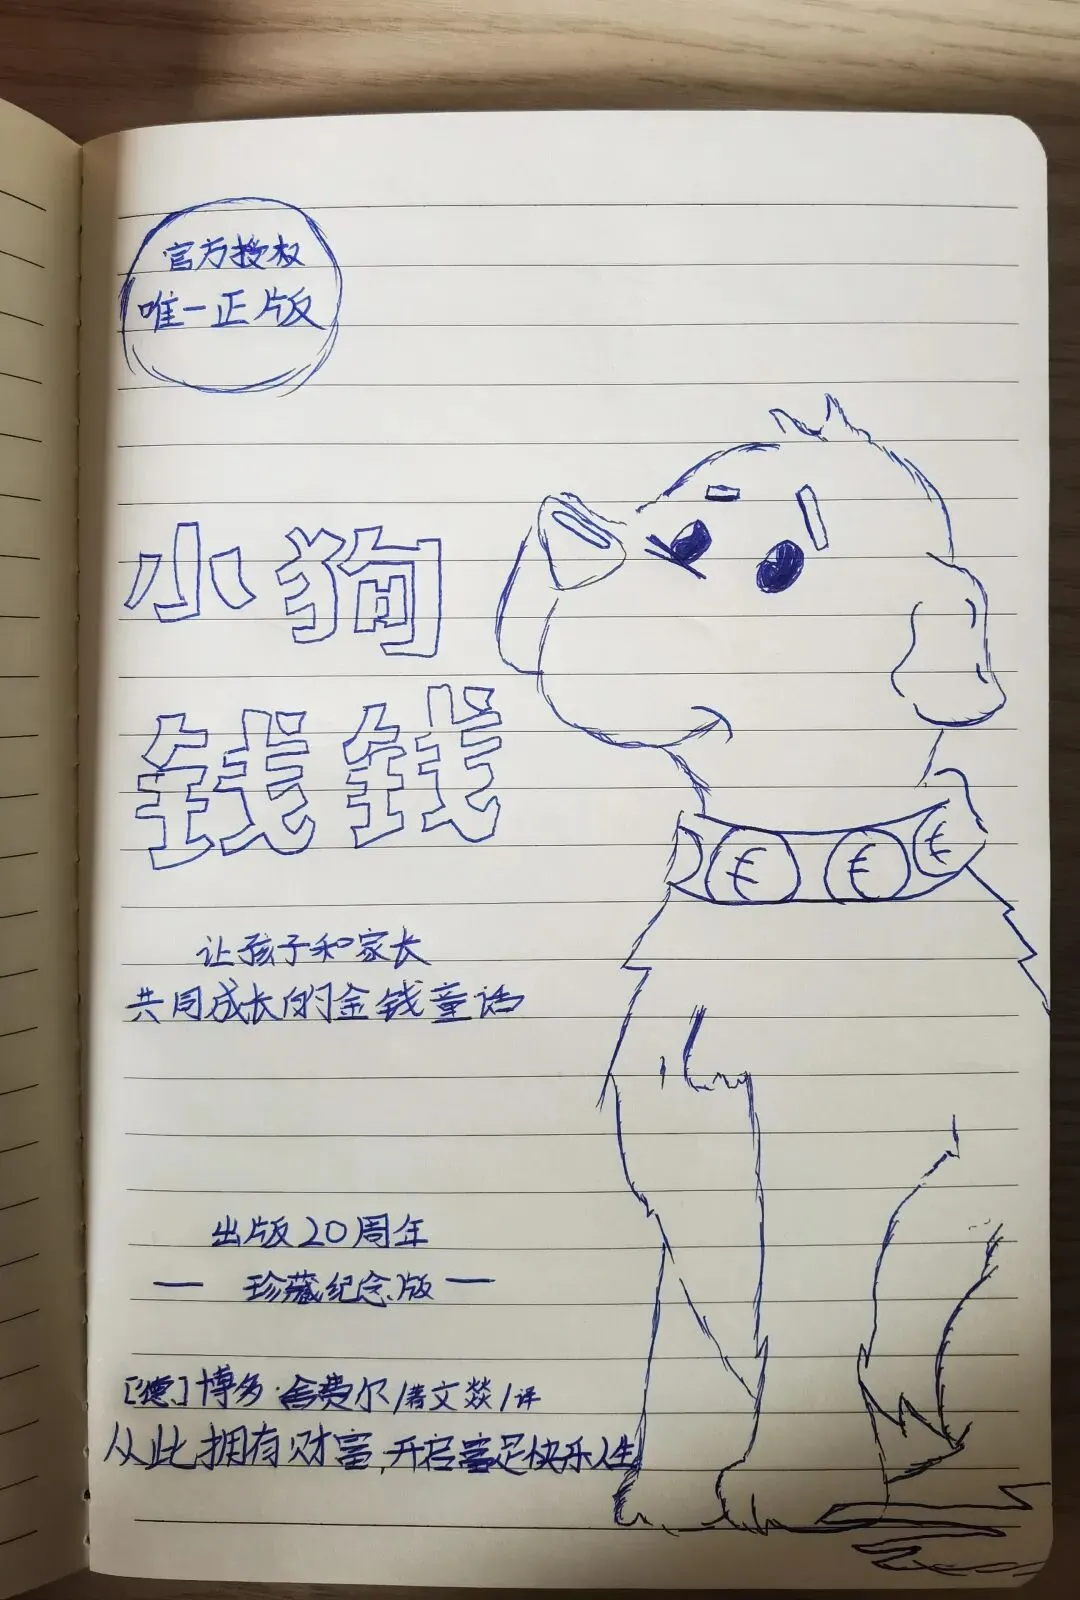 官方授权
唯一正版
小狗
钱钱
让孩子和家长
共同成长的金钱童话
出版20周年
— 珍藏纪念版 —
[德]博多·舍费尔/著文燚/译
从此拥有财富,开启富足快乐人生
€ € €